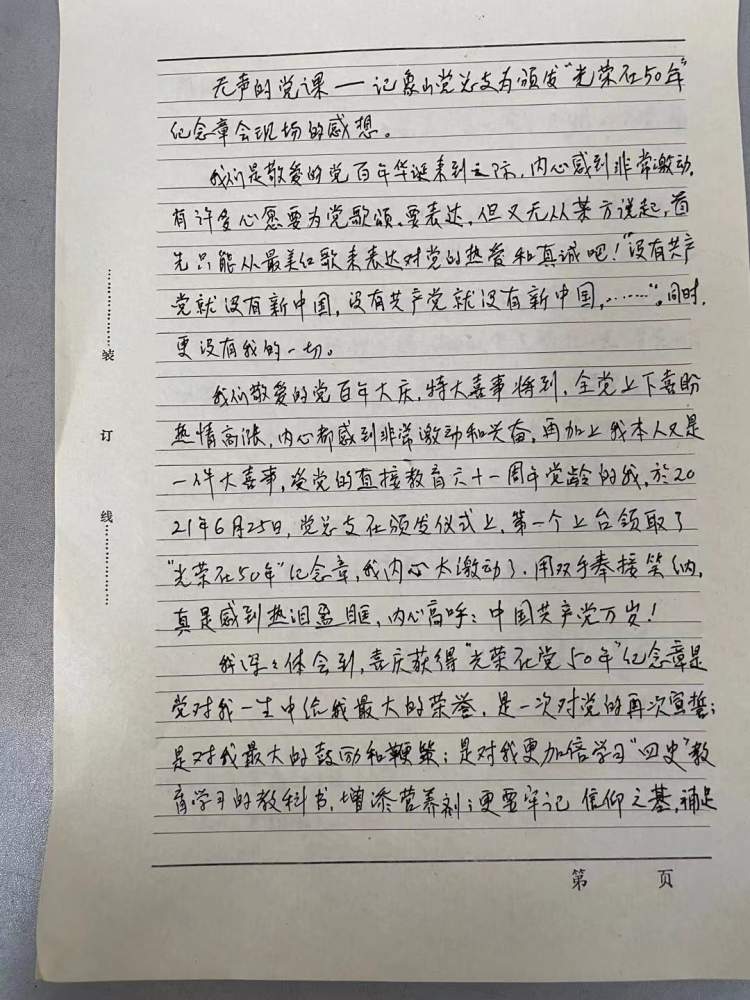 无声的党课——记象山党总支为颁发“光荣在50年”
纪念章会现场的感想。
我们是敬爱的党百年华诞来到之际，内心感到非常激动，
有许多心愿要为党歌颂，要表达，但又无从某方说起，首
先只能从最美红歌来表达对党的热爱和真诚吧！“没有共产
党就没有新中国，没有共产党就没有新中国，……”。同时，
更没有我的一切。
我们敬爱的党百年大庆，特大喜事将到，全党上下喜盼
热情高涨，内心都感到非常激动和兴奋，再加上我本人又是
一件大喜事，受党的直接教育六十一周年党龄的我，於20
21年6月25日，党总支在颁发仪式上，第一个上台领取了
“光荣在50年”纪念章，我内心太激动了，用双手奉接笑纳，
真是感到热泪盈眶，内心高呼：中国共产党万岁！
我深々体会到，喜庆获得“光荣在党50年”纪念章是
党对我一生中给我最大的荣誉，是一次对党的再次宣誓；
是对我最大的鼓励和鞭策；是对我更加倍学习“四史”教
育学习的教科书，增添营养剂；更要牢记信仰之基，补足
装
订
线
第 页